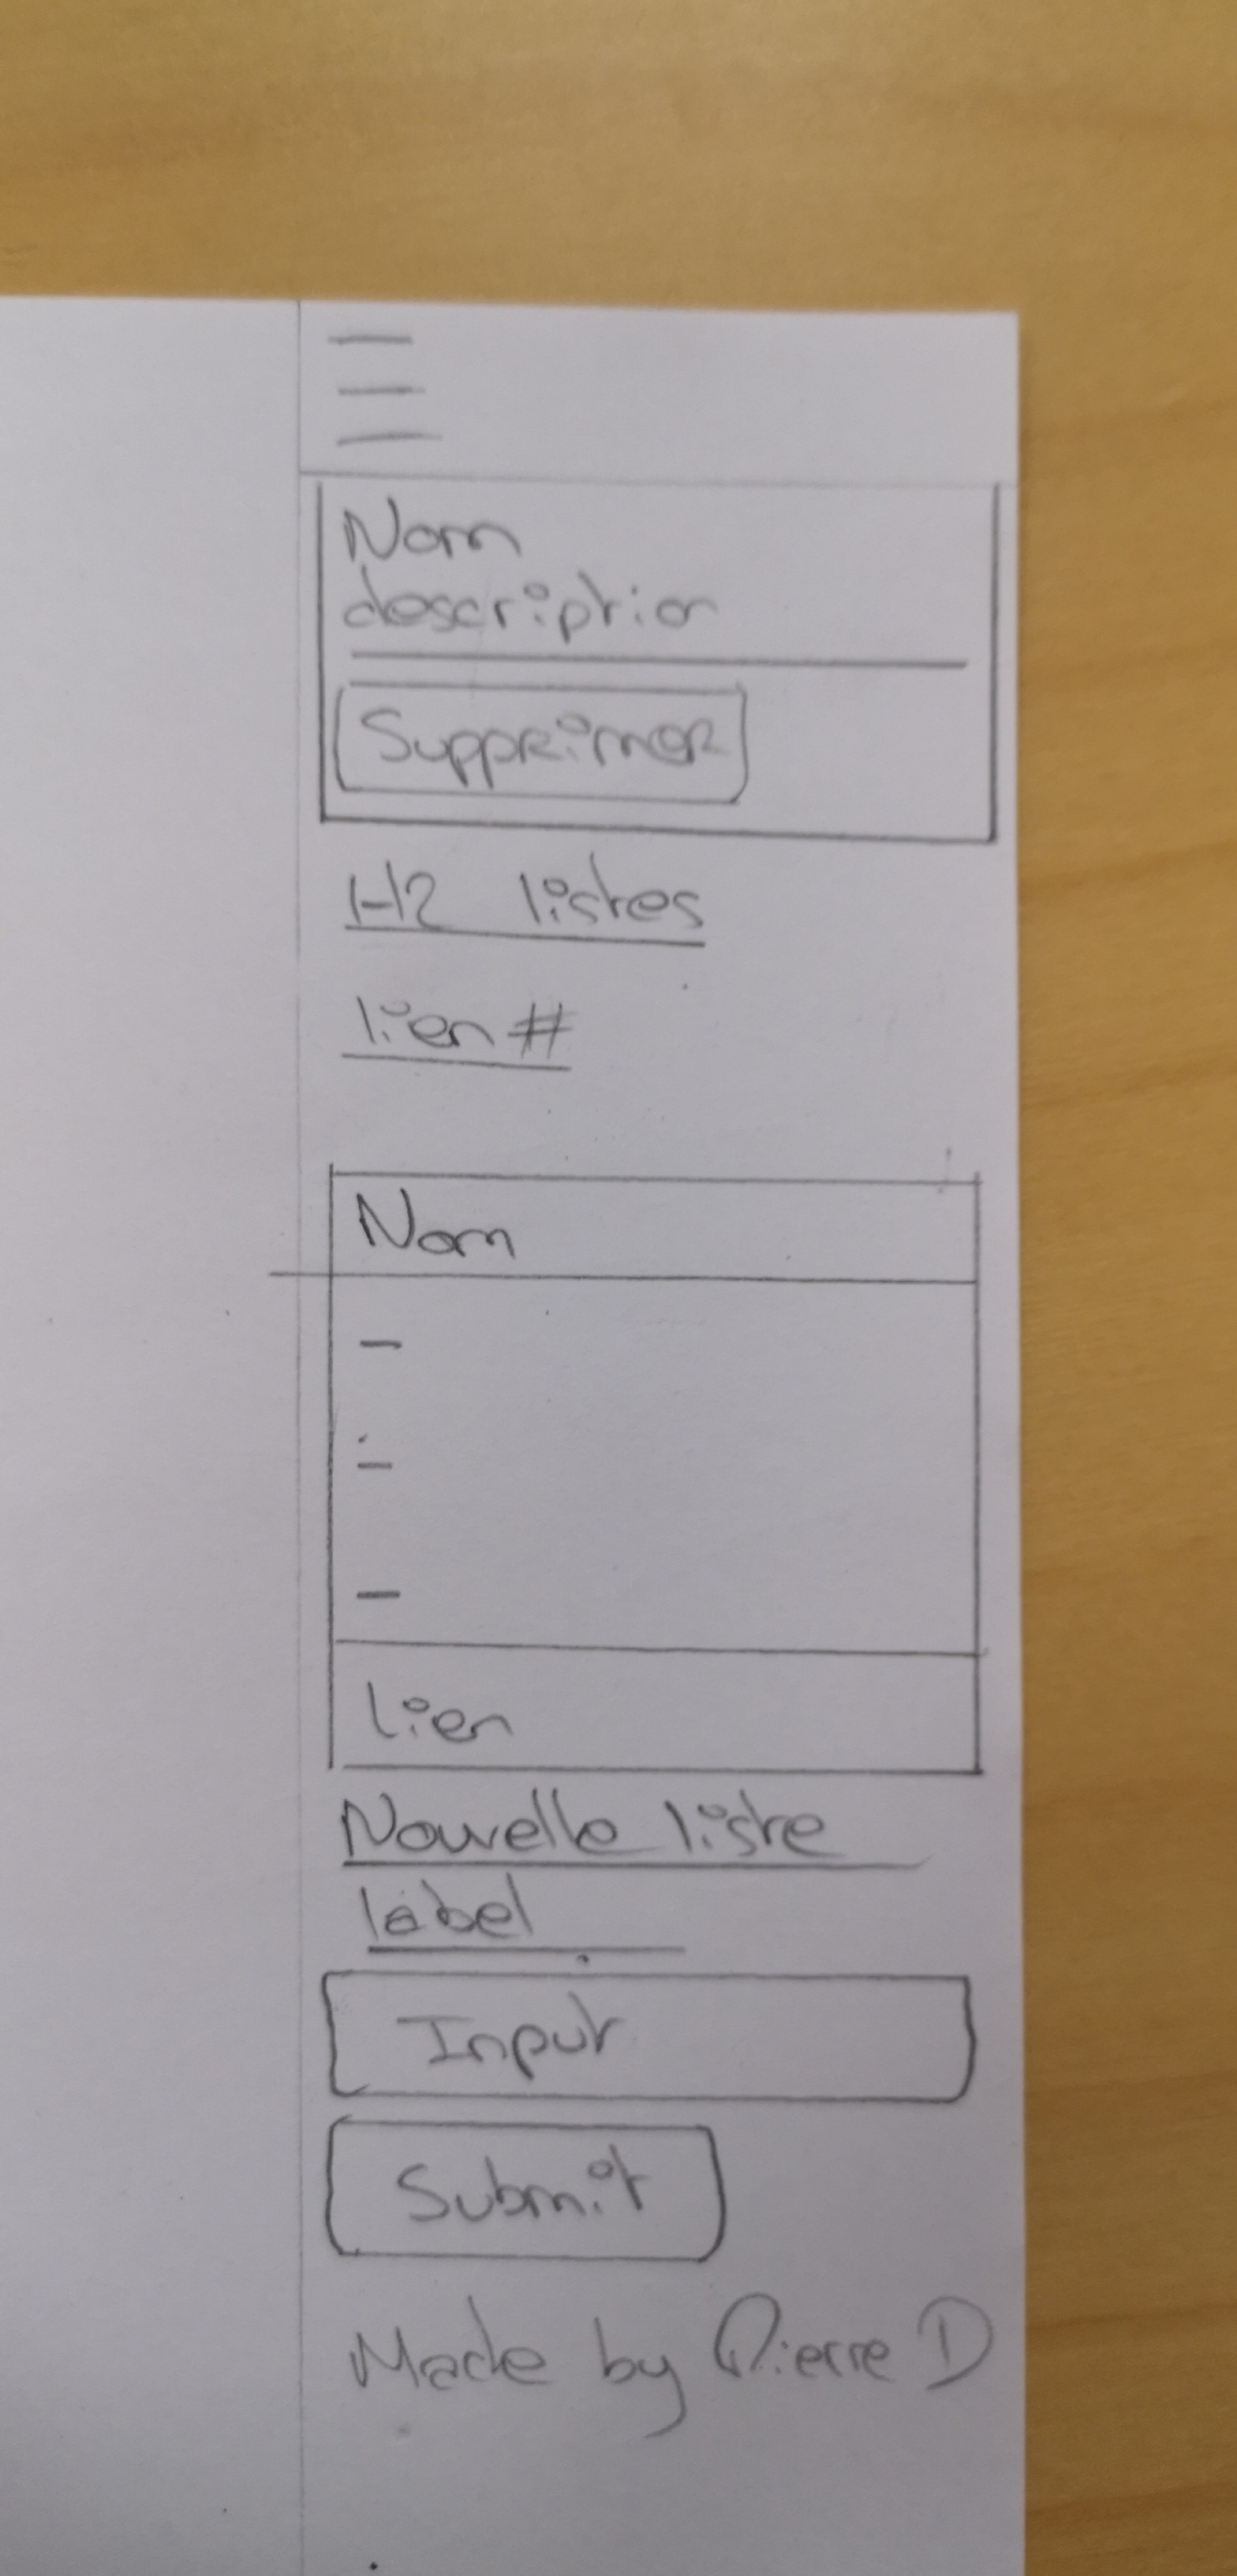 Nom
description
Supprimer
H2 listes
lien #
Nom
lien
Nouvelle liste
label
Input
Submit
Made by Pierre D